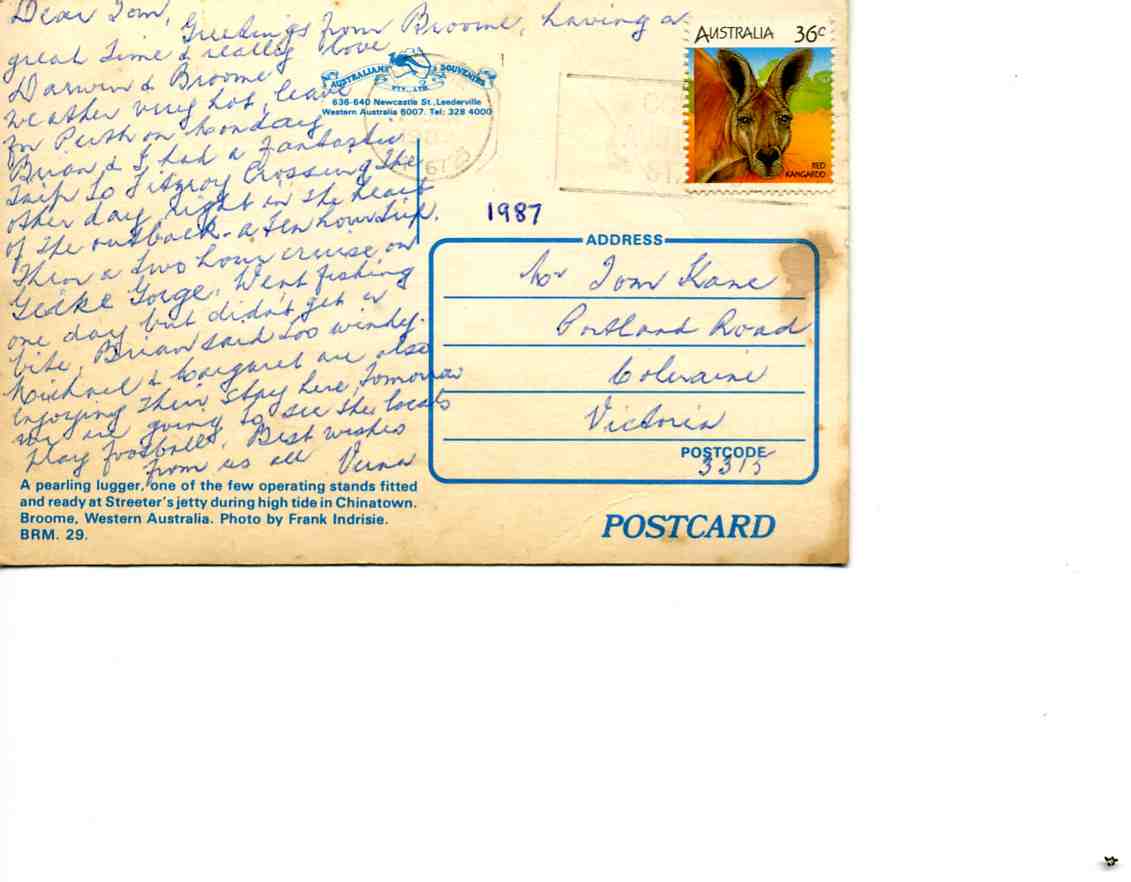 Dear Tom,
Greetings from Broome, having a
great time & really love
Darwin & Broome
weather very hot, leave
for Perth on Monday
Brian & I had a fantastic
trip to Fitzroy Crossing the
other day, right in the heart
of the outback - a ten hour trip.
Then a two hour cruise on
Geike Gorge. Went fishing
one day but didn't get a
bite, Brian said too windy.
Michael & Margaret are also
enjoying their stay here, Tomorrow
we are going to see the locals
play football. Best wishes
from us all Verna
AUSTRALIANA SOUVENIRS
PTY. LTD.
636-640 Newcastle St., Leederville
Western Australia 6007. Tel: 328 4000
6725
AUSTRALIA 36c
RED
KANGAROO
1987
ADDRESS
Mr Tom Kane
Portland Road
Coleraine
Victoria
POSTCODE
3315
A pearling lugger, one of the few operating stands fitted
and ready at Streeter's jetty during high tide in Chinatown.
Broome, Western Australia. Photo by Frank Indrisie.
BRM. 29.
POSTCARD